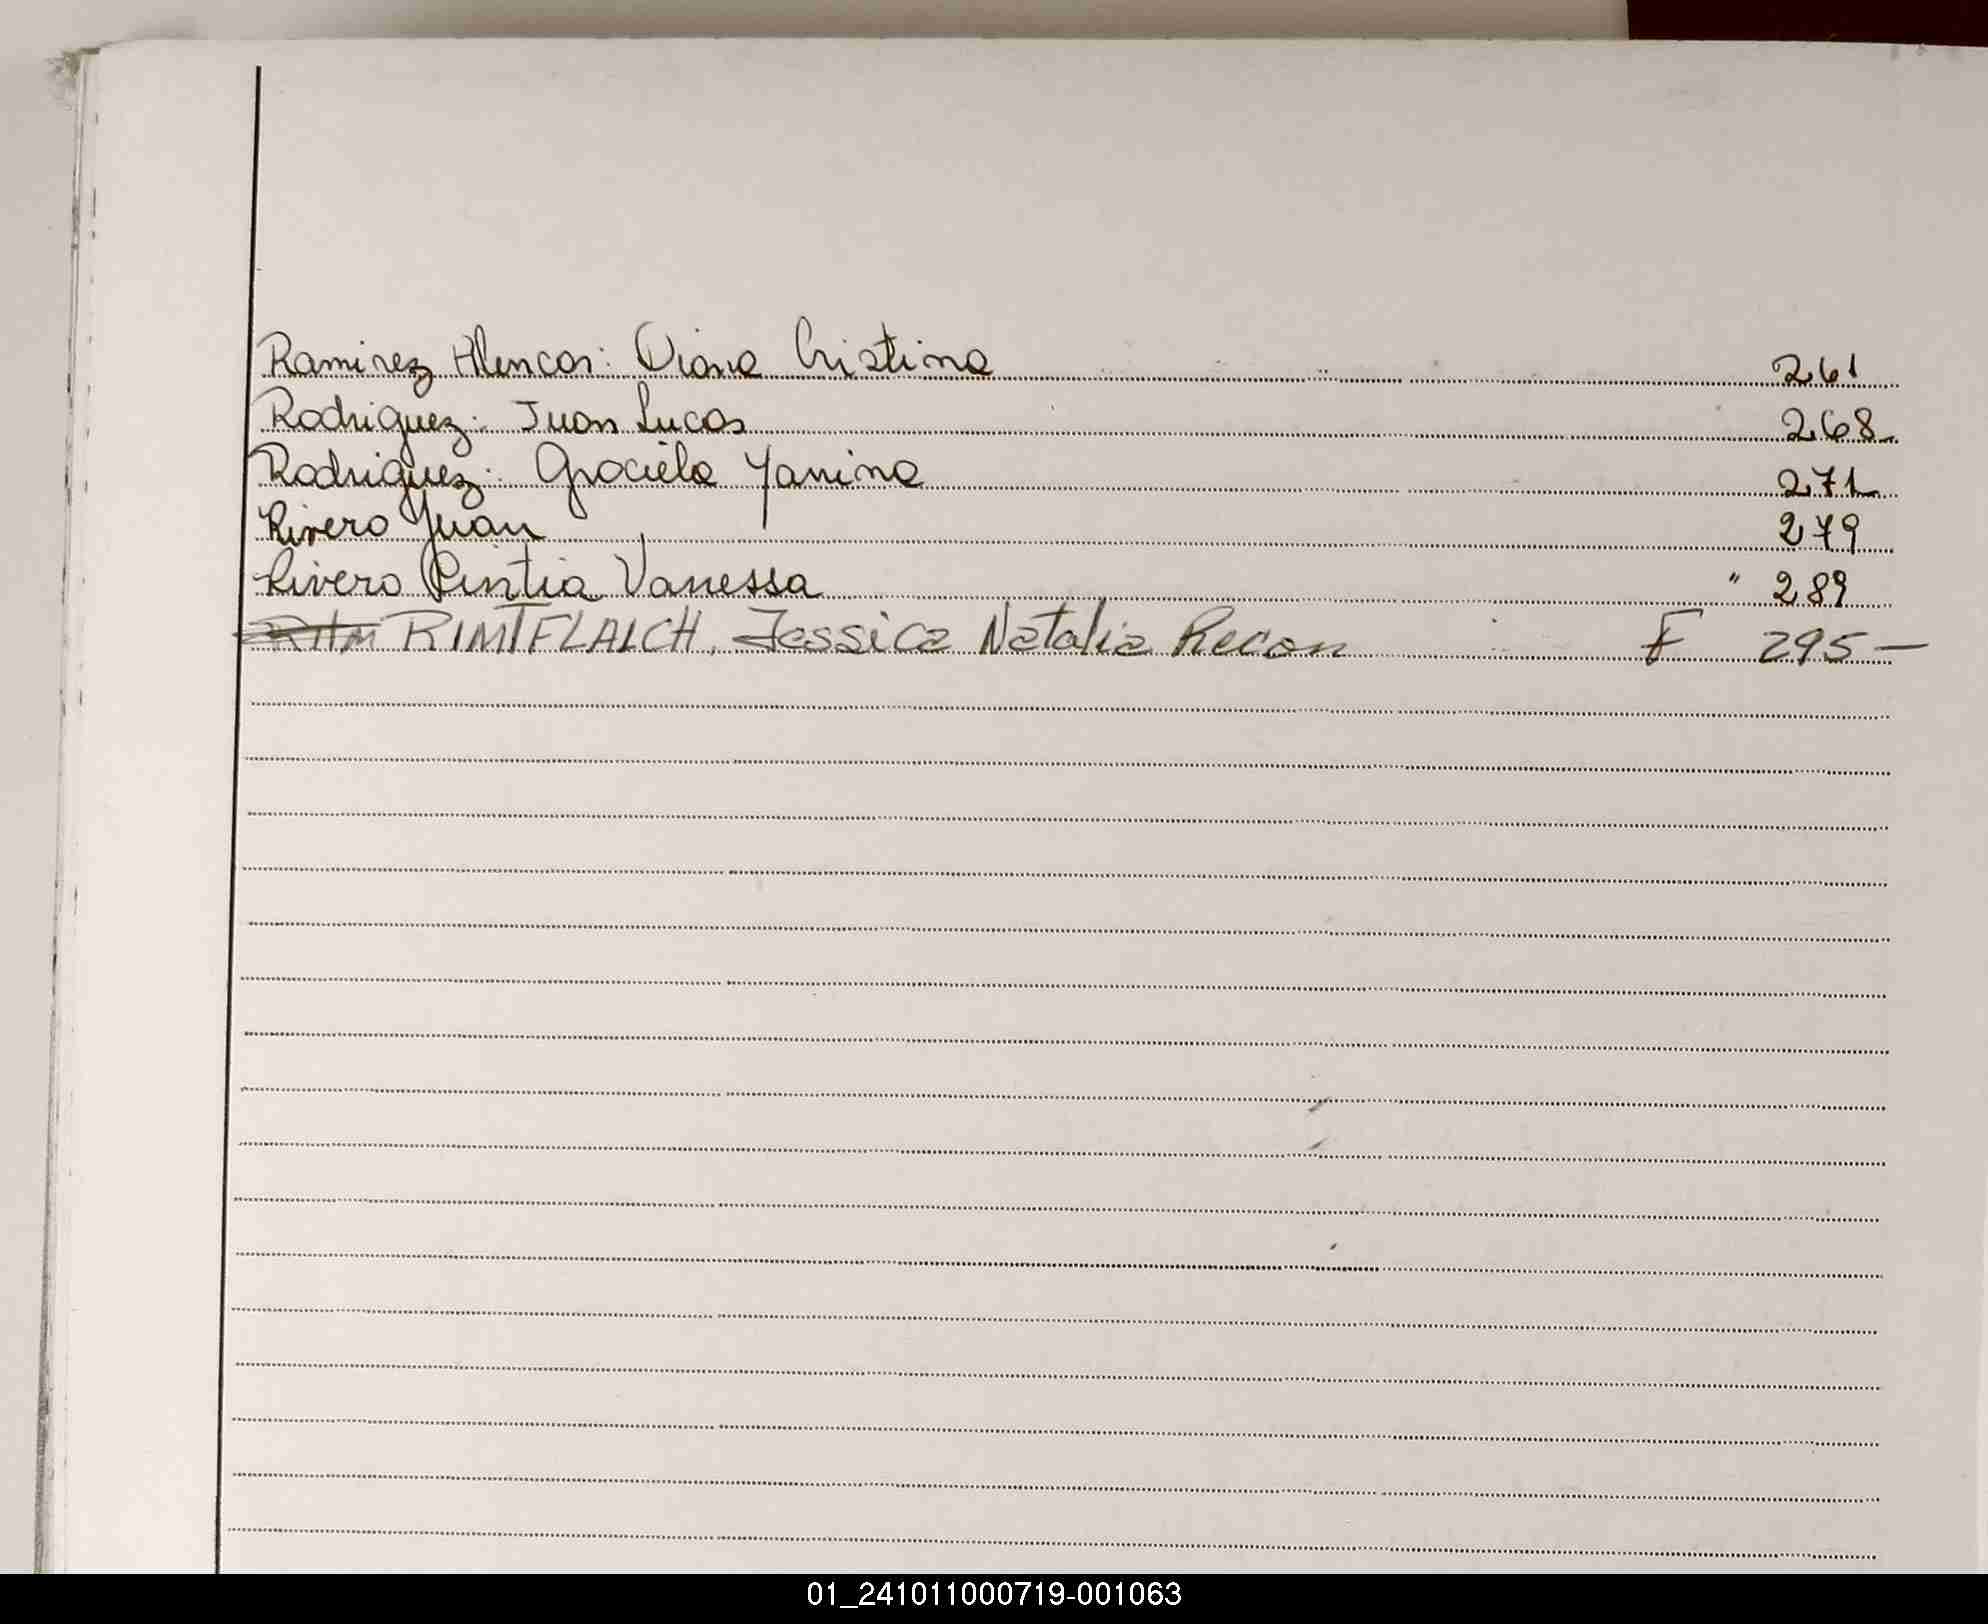 Ramirez Alencar: Diana Cristina 261
Rodriguez: Juan Lucas 268
Rodriguez: Graciela Yanina 271
Rivero Juan 279
Rivero Cintia Vanessa " 289
RIMTFLAICH, Jessica Natalia Recon F 295-
01_241011000719-001063